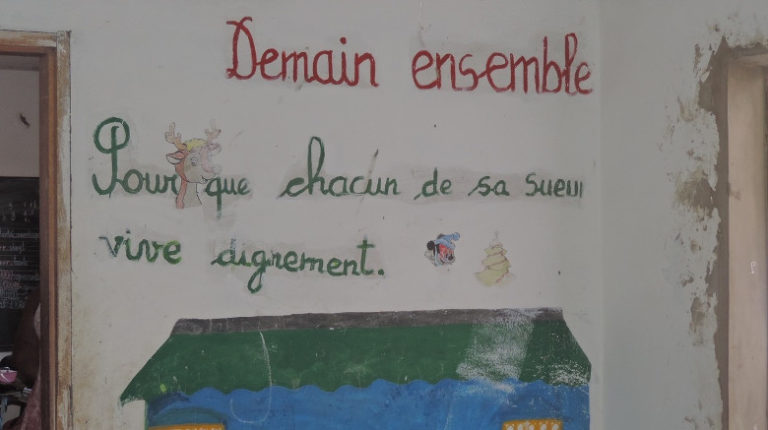 Demain ensemble
Pour que chacun de sa sueur
vive dignement.